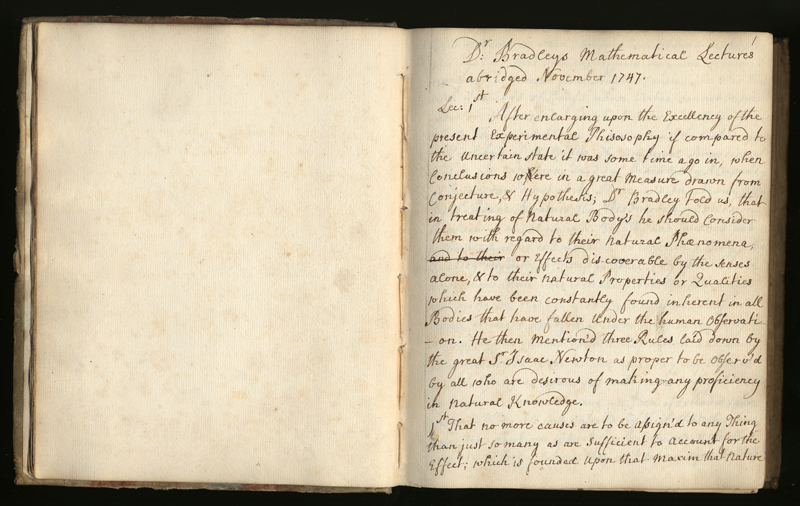 1
Dr: Bradleys Mathematical Lectures
abridged November 1747.
Lec: 1st After enlarging upon the Excellency of the
present Experimental Philosophy if compared to
the uncertain state it was some time ago in, when
Conclusions were in a great Measure drawn from
Conjecture, & Hypothesis; Dr Bradley told us, that
in treating of Natural Body's he should Consider
them with regard to their natural Phænomena,
and to their or Effects discoverable by the senses
alone, & to their natural Properties or Qualities
which have been constantly found inherent in all
Bodies that have fallen under the human Observati
-on. He then mention'd three Rules laid down by
the great Sr Isaac Newton as proper to be Observ'd
by all who are desirous of making any proficiency
in Natural Knowledge.
1st That no more causes are to be Assign'd to any Thing
than just so many as are Sufficient to account for the
Effect; which is founded upon that Maxim that Nature